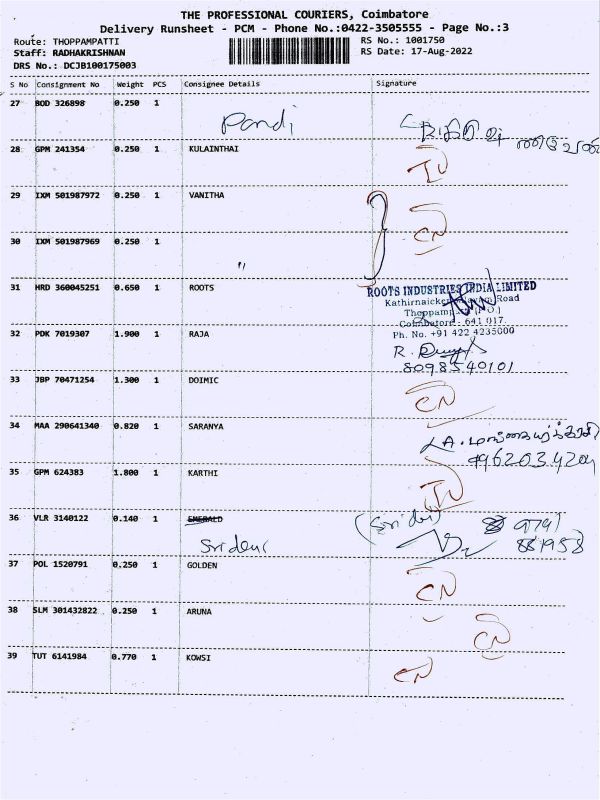 THE PROFESSIONAL COURIERS, Coimbatore
Delivery Runsheet - PCM - Phone No.:0422-3505555 - Page No.:3
Route: THOPPAMPATTI RS No.: 1001750
Staff: RADHAKRISHNAN RS Date: 17-Aug-2022
DRS No.: DCJB100175003
S No Consignment No Weight PCS Consignee Details Signature
27 BOD 326898 0.250 1
Pandi
28 GPM 241354 0.250 1 KULAINTHAI
29 IXM 501987972 0.250 1 VANITHA
CN
30 IXM 501987969 0.250 1
"
31 HRD 360045251 0.650 1 ROOTS
ROOTS INDUSTRIES INDIA LIMITED
Road
Coimbatore - 641 017
Ph. No. +91 422 4235000
32 PDK 7019307 1.900 1 RAJA
R.
8098540101
33 JBP 70471254 1.300 1 DOIMIC
CN
34 MAA 290641340 0.820 1 SARANYA
35 GPM 624383 1.800 1 KARTHI
36 VLR 3140122 0.140 1 EMERALD
(Sridevi) 9791
Sridevi 881958
37 POL 1520791 0.250 1 GOLDEN
CN
38 SLM 301432822 0.250 1 ARUNA
CN
39 TUT 6141984 0.770 1 KOWSI
CN